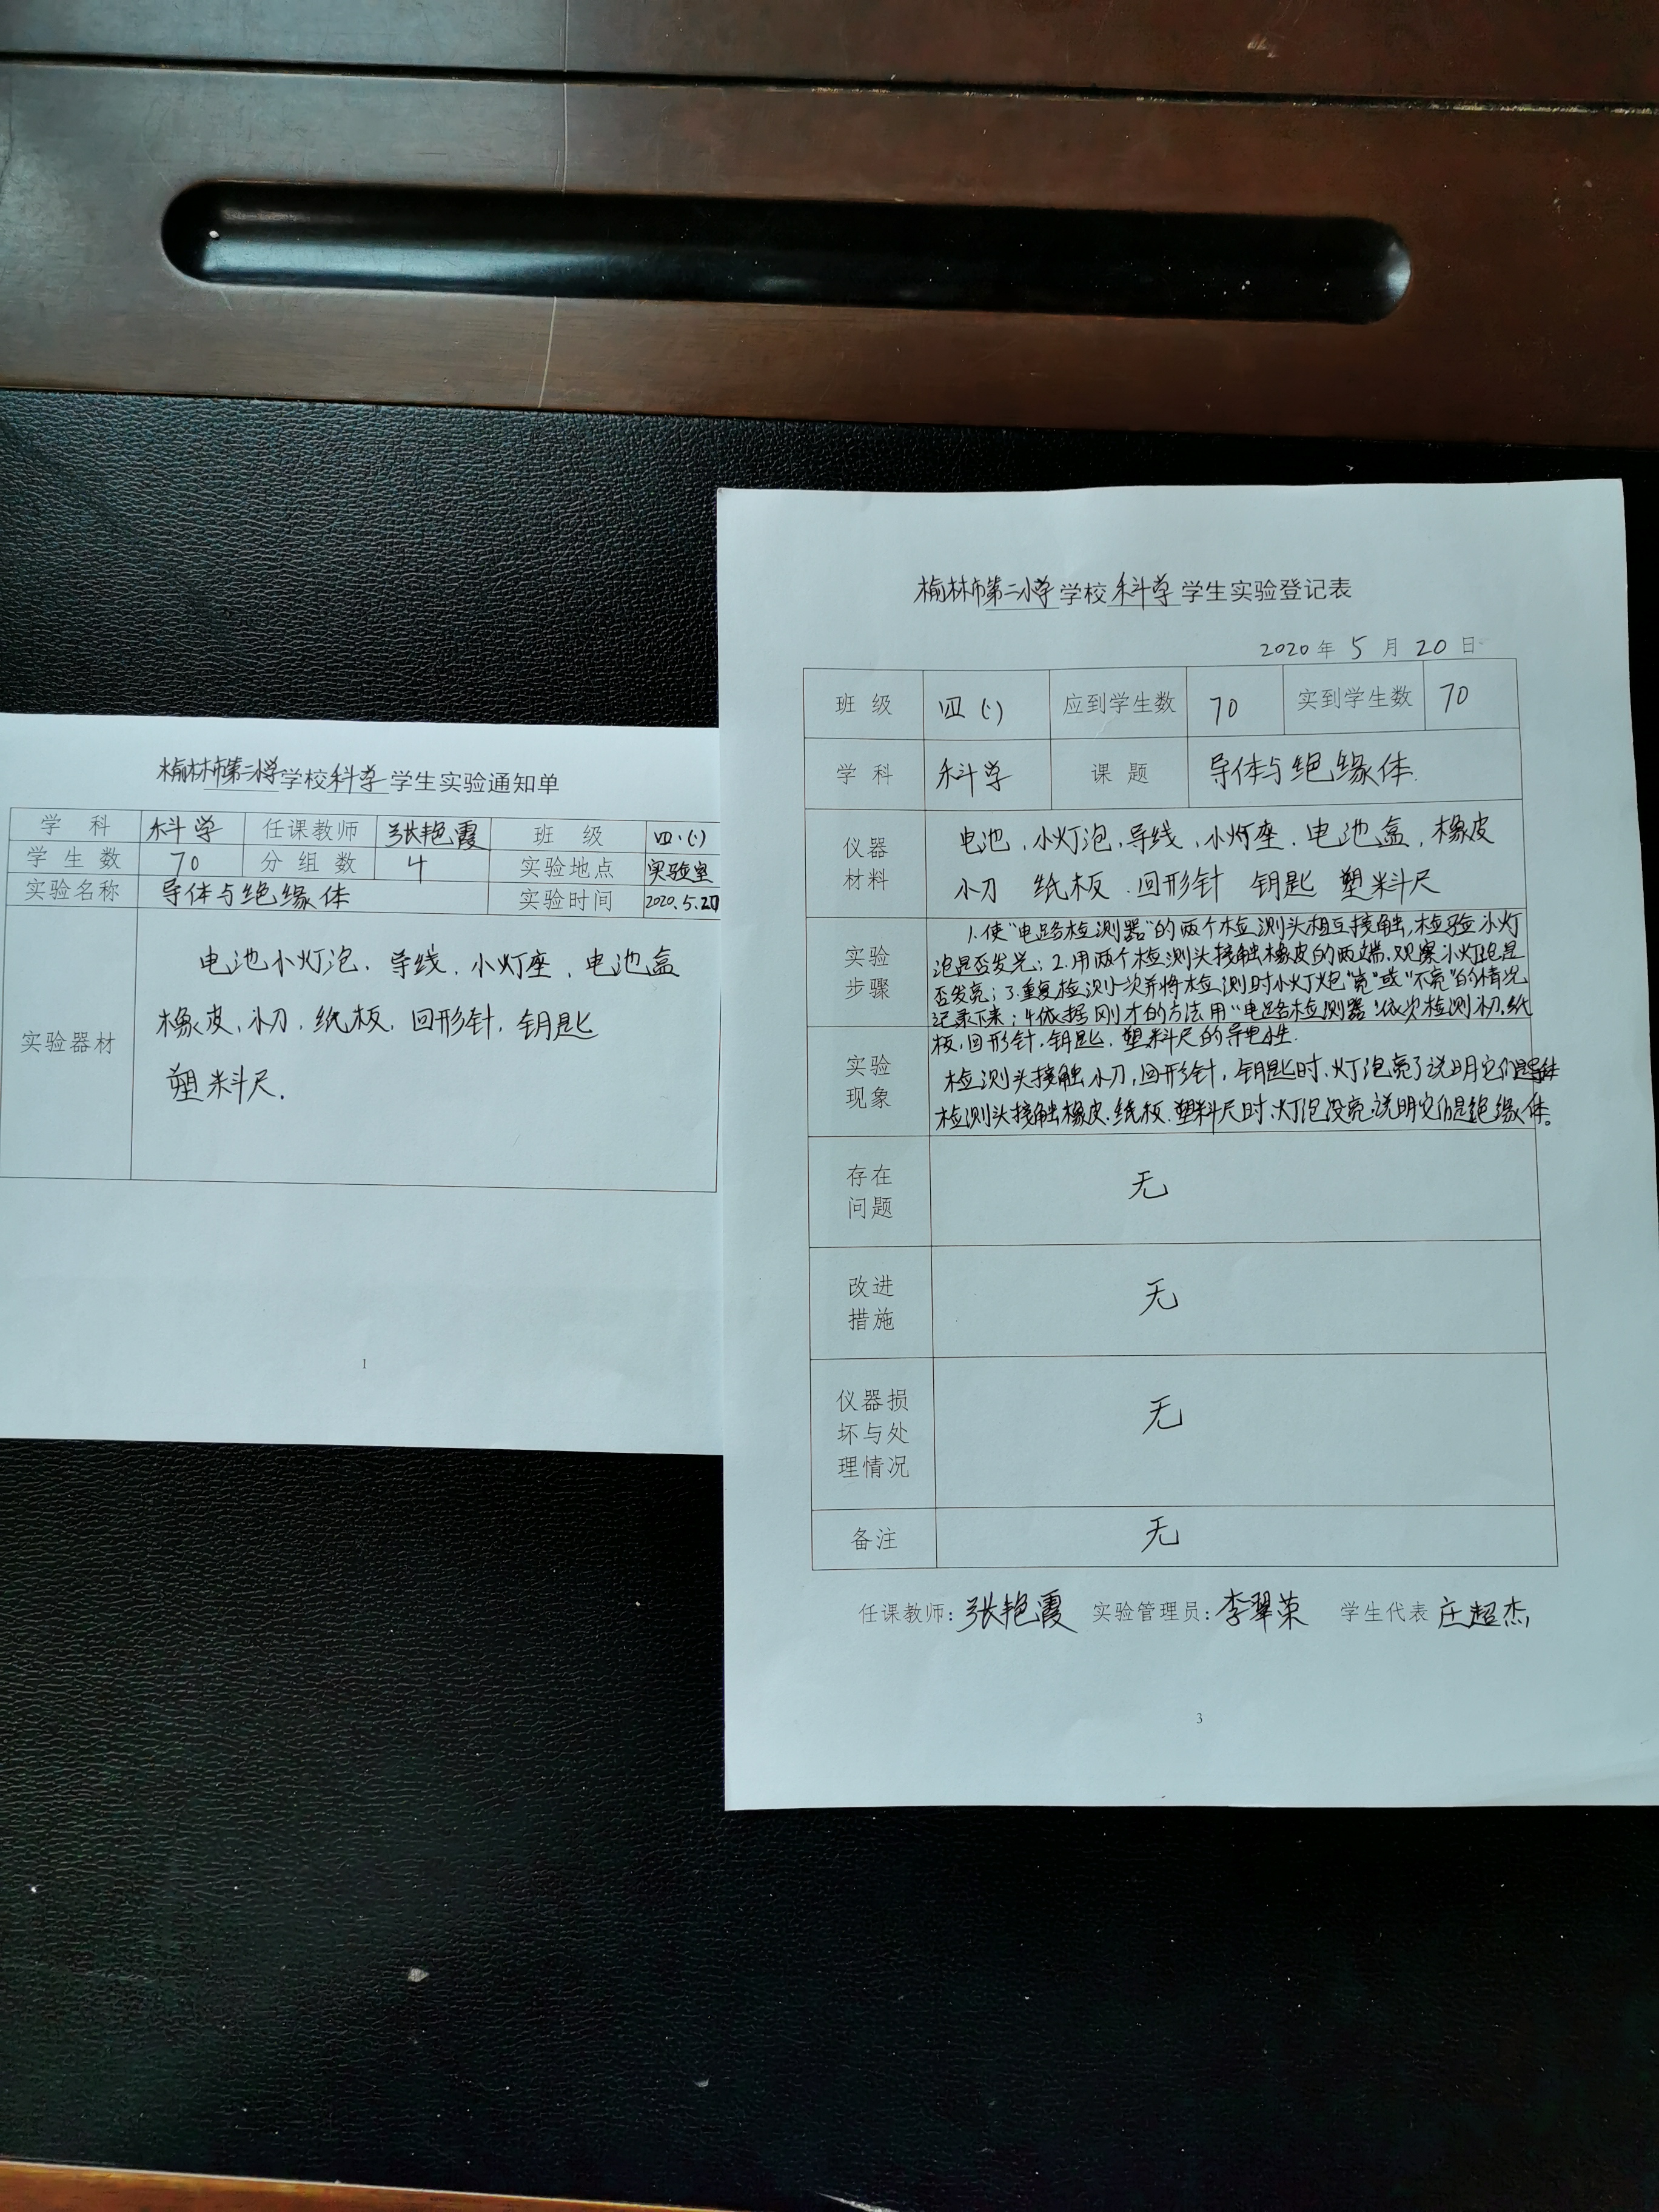 榆林市第二小学学校科学学生实验通知单
学科 科学 任课教师 张艳霞 班级 四.(1)
学生数 70 分组数 4 实验地点 实验室
实验名称 导体与绝缘体 实验时间 2020.5.20
实验器材
电池小灯泡、导线、小灯座、电池盒
橡皮、小刀、纸板、回形针、钥匙
塑料尺.
1
榆林市第二小学学校科学学生实验登记表
2020年5月20日
班级 四(1) 应到学生数 70 实到学生数 70
学科 科学 课题 导体与绝缘体.
仪器材料
电池、小灯泡、导线、小灯座、电池盒、橡皮
小刀 纸板、回形针 钥匙 塑料尺
实验步骤
1.使“电路检测器”的两个检测头相互接触,检验小灯
泡是否发光;2.用两个检测头接触橡皮的两端,观察小灯泡是
否发亮;3.重复检测一次并将检测时小灯泡“亮”或“不亮”的情况
记录下来;4.依据刚才的方法用“电路检测器”依次检测小刀、纸
板、回形针、钥匙、塑料尺的导电性.
实验现象
检测头接触小刀,回形针,钥匙时、灯泡亮了说明它们是导体
检测头接触橡皮、纸板、塑料尺时、灯泡没亮、说明它们是绝缘体。
存在问题 无
改进措施 无
仪器损坏与处理情况 无
备注 无
任课教师:张艳霞 实验管理员:李翠荣 学生代表 庄超杰
3